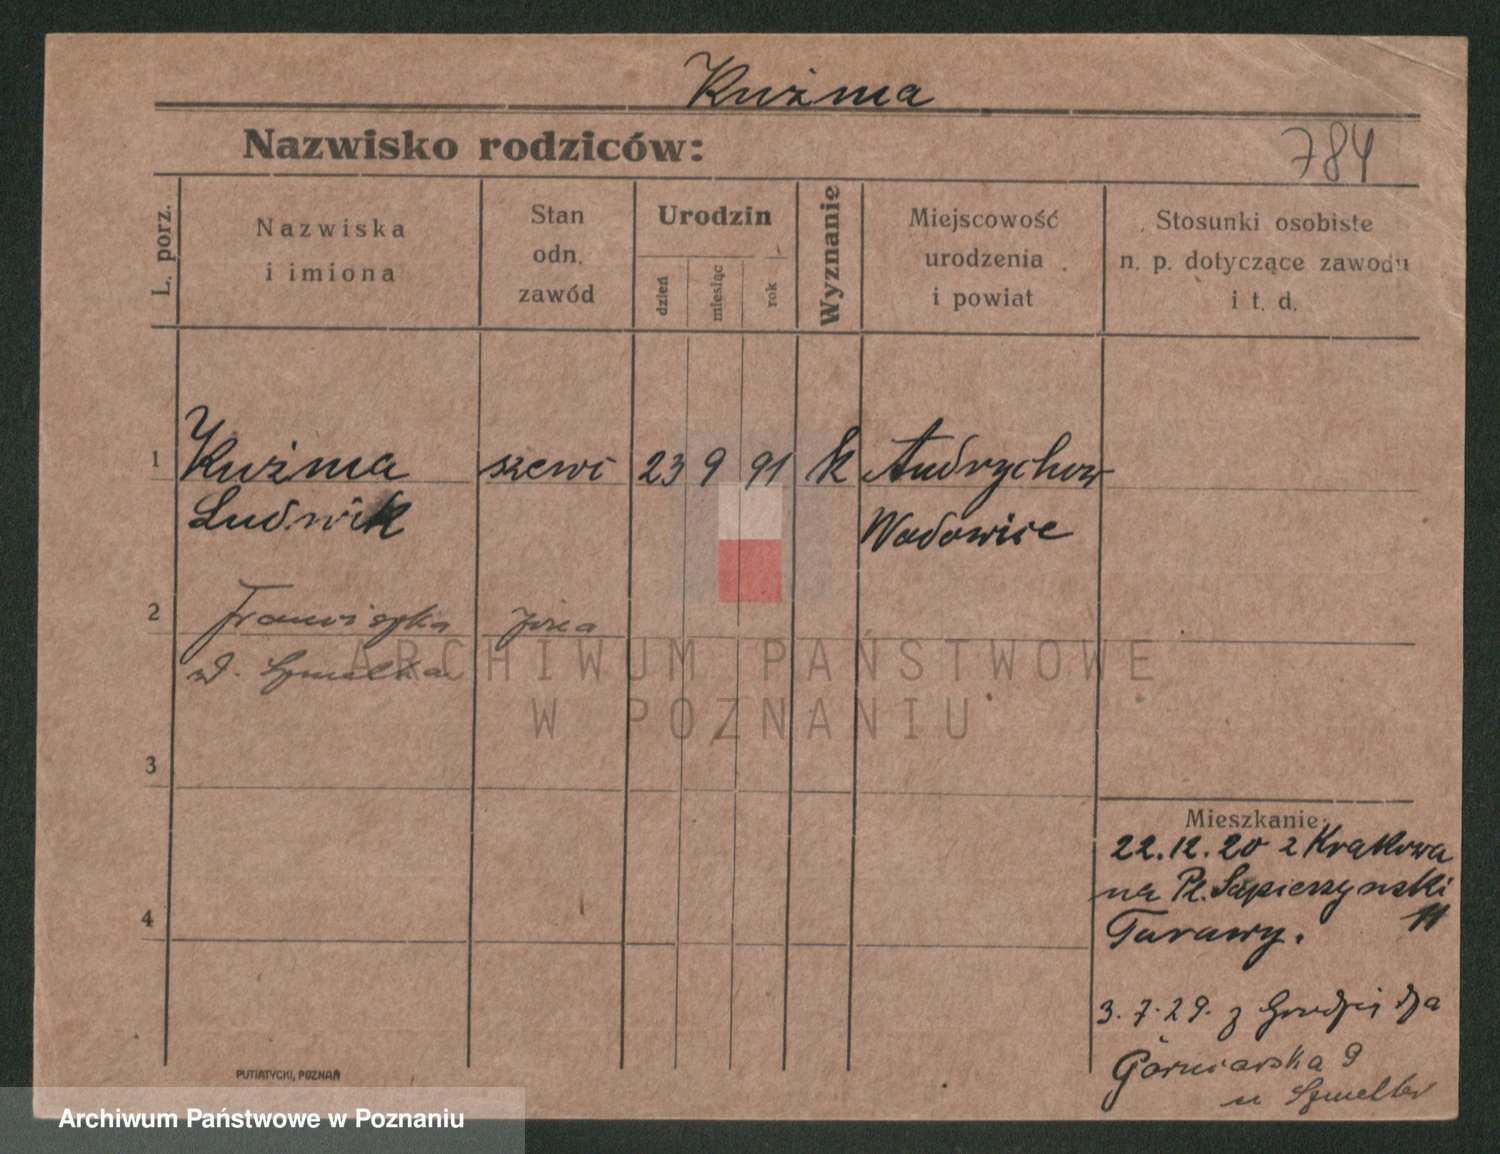 Kuźma
Nazwisko rodziców:
784
L. porz.
Nazwiska
i imiona
Stan
odn.
zawód
Urodzin
dzień
miesiąc
rok
Wyznanie
Miejscowość
urodzenia
i powiat
Stosunki osobiste
n. p. dotyczące zawodu
i t. d.
1
Kuźma szewc 23 9 91 k Andrychow
Ludwik Wadowice
2
Franciszka żona
Szmelka
3
4
Mieszkanie:
22.12.20 z Krakowa
na Pl. Sapierzynski
11
3.7.29. z
Górniarska 9
ARCHIWUM PAŃSTWOWE
W POZNANIU
PUTIATYCKI, POZNAŃ
Archiwum Państwowe w Poznaniu